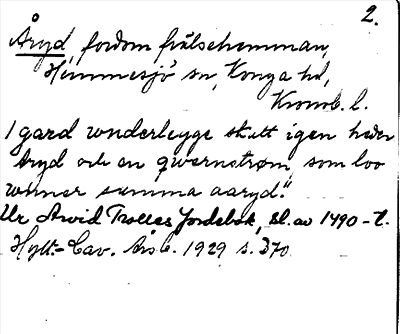 2.
Åryd, fordom frälsehemman,
Hemmesjö sn, Konga hd,
Kronob. l.
1 gard vnderlegge skatt igen heder
Aryd och en qwernstrøm, som loo
winner summa aaryd."
Ur Arvid Trolles Jordebok, sl. av 1490-t.
Hylt.-Cav. Årsb. 1929 s. 370